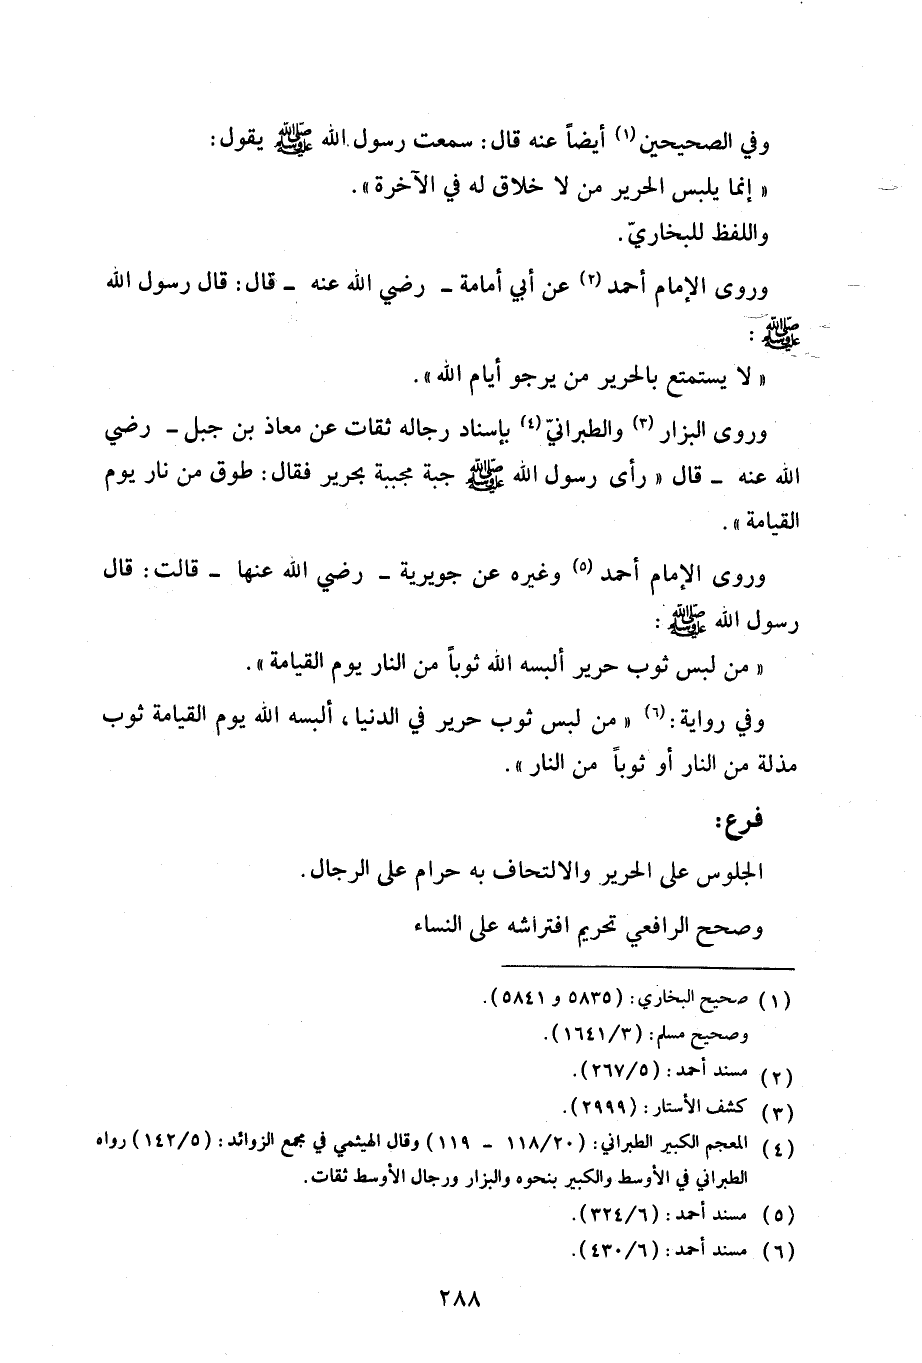 وفي الصحيحين (١) أيضاً عنه قال: سمعت رسول الله ﷺ يقول:
« إنما يلبس الحرير من لا خلاق له في الآخرة ».
واللفظ للبخاريّ.
وروى الإمام أحمد (٢) عن أبي أمامة – رضي الله عنه – قال: قال رسول الله
ﷺ :
« لا يستمتع بالحرير من يرجو أيام الله ».
وروى البزار (٣) والطبرانيّ (٤) بإسناد رجاله ثقات عن معاذ بن جبل – رضي
الله عنه – قال « رأى رسول الله ﷺ جبة مجيبة بحرير فقال: طوق من نار يوم
القيامة ».
وروى الإمام أحمد (٥) وغيره عن جويرية – رضي الله عنها – قالت: قال
رسول الله ﷺ :
« من لبس ثوب حرير ألبسه الله ثوباً من النار يوم القيامة ».
وفي رواية: (٦) « من لبس ثوب حرير في الدنيا، ألبسه الله يوم القيامة ثوب
مذلة من النار أو ثوباً من النار ».
فرع:
الجلوس على الحرير والالتحاف به حرام على الرجال.
وصحح الرافعي تحريم افتراشه على النساء
(١) صحيح البخاري: (٥٨٣٥ و ٥٨٤١).
وصحيح مسلم: (١٦٤١/٣).
(٢) مسند أحمد: (٢٦٧/٥).
(٣) كشف الأستار: (٢٩٩٩).
(٤) المعجم الكبير الطبراني: (١١٨/٢٠ – ١١٩) وقال الهيثمي في مجمع الزوائد: (١٤٢/٥) رواه
الطبراني في الأوسط والكبير بنحوه والبزار ورجال الأوسط ثقات.
(٥) مسند أحمد: (٣٢٤/٦).
(٦) مسند أحمد: (٤٣٠/٦).
٢٨٨